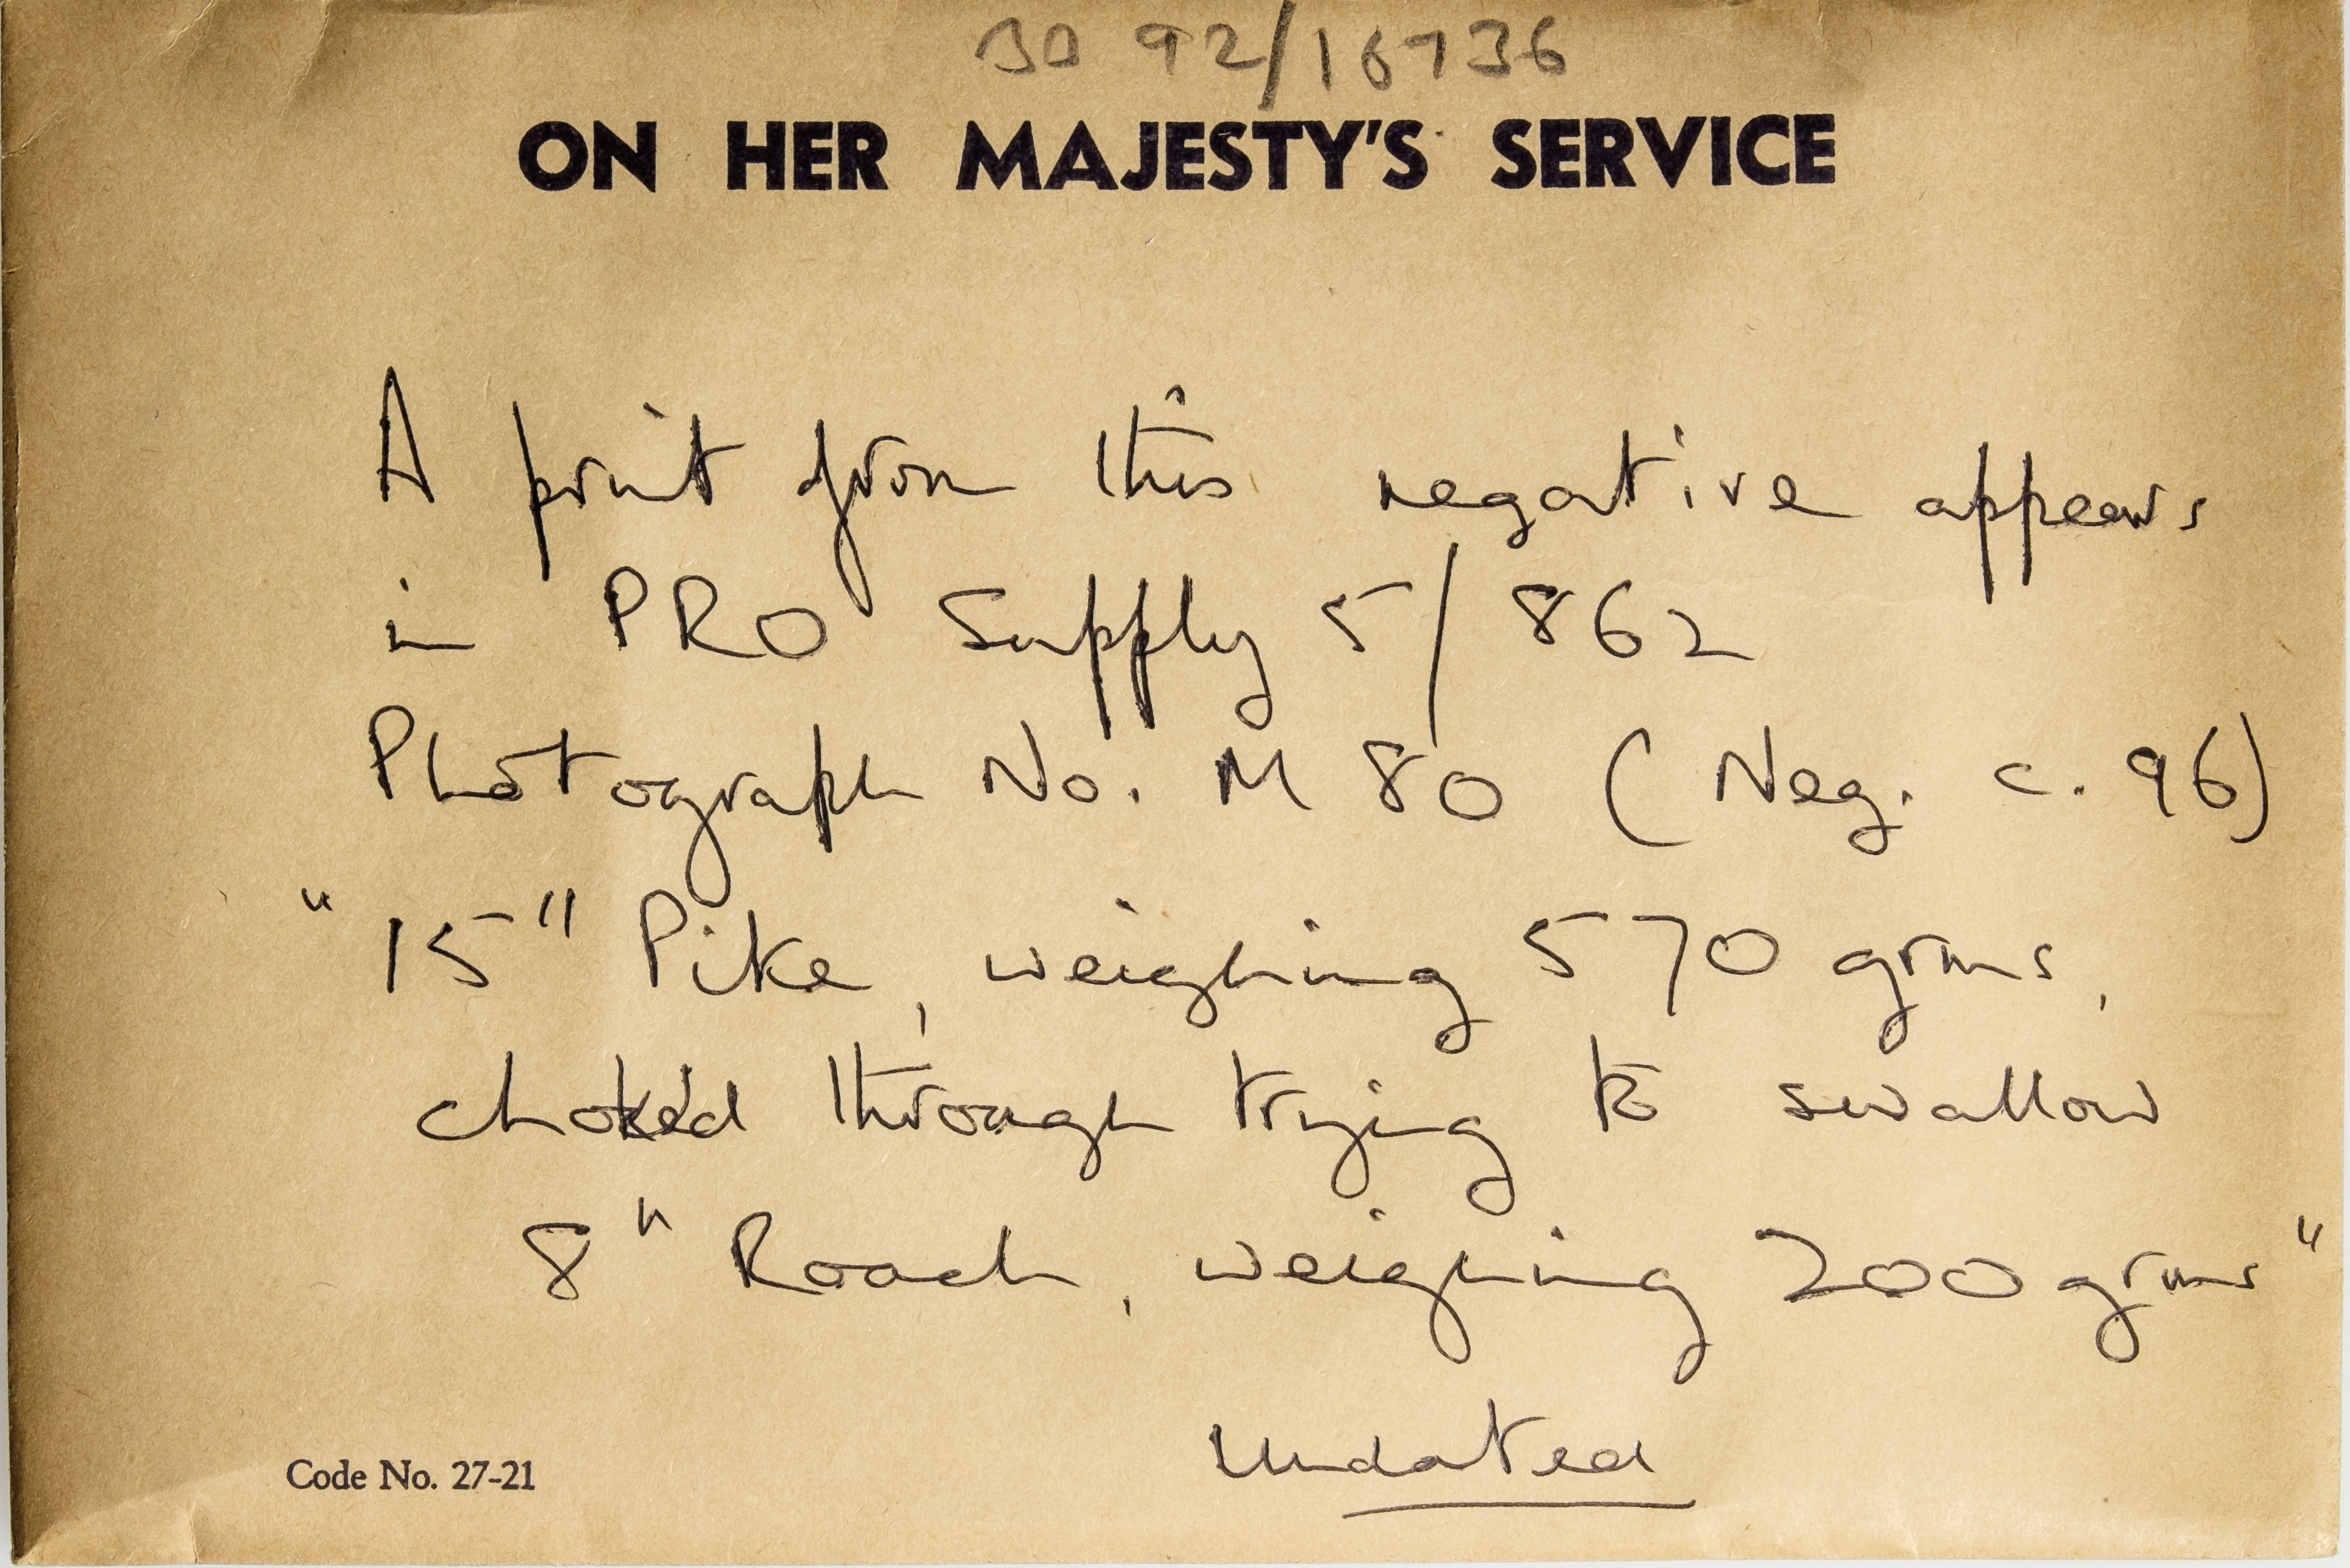 30 92/16736
ON HER MAJESTY'S SERVICE
A print from this negative appears
in PRO Supply 5/862
Photograph No. M 80 (Neg. c. 96)
"15" Pike, weighing 570 grms,
choked through trying to swallow
8" Roach, weighing 200 grms"
Undated
Code No. 27-21